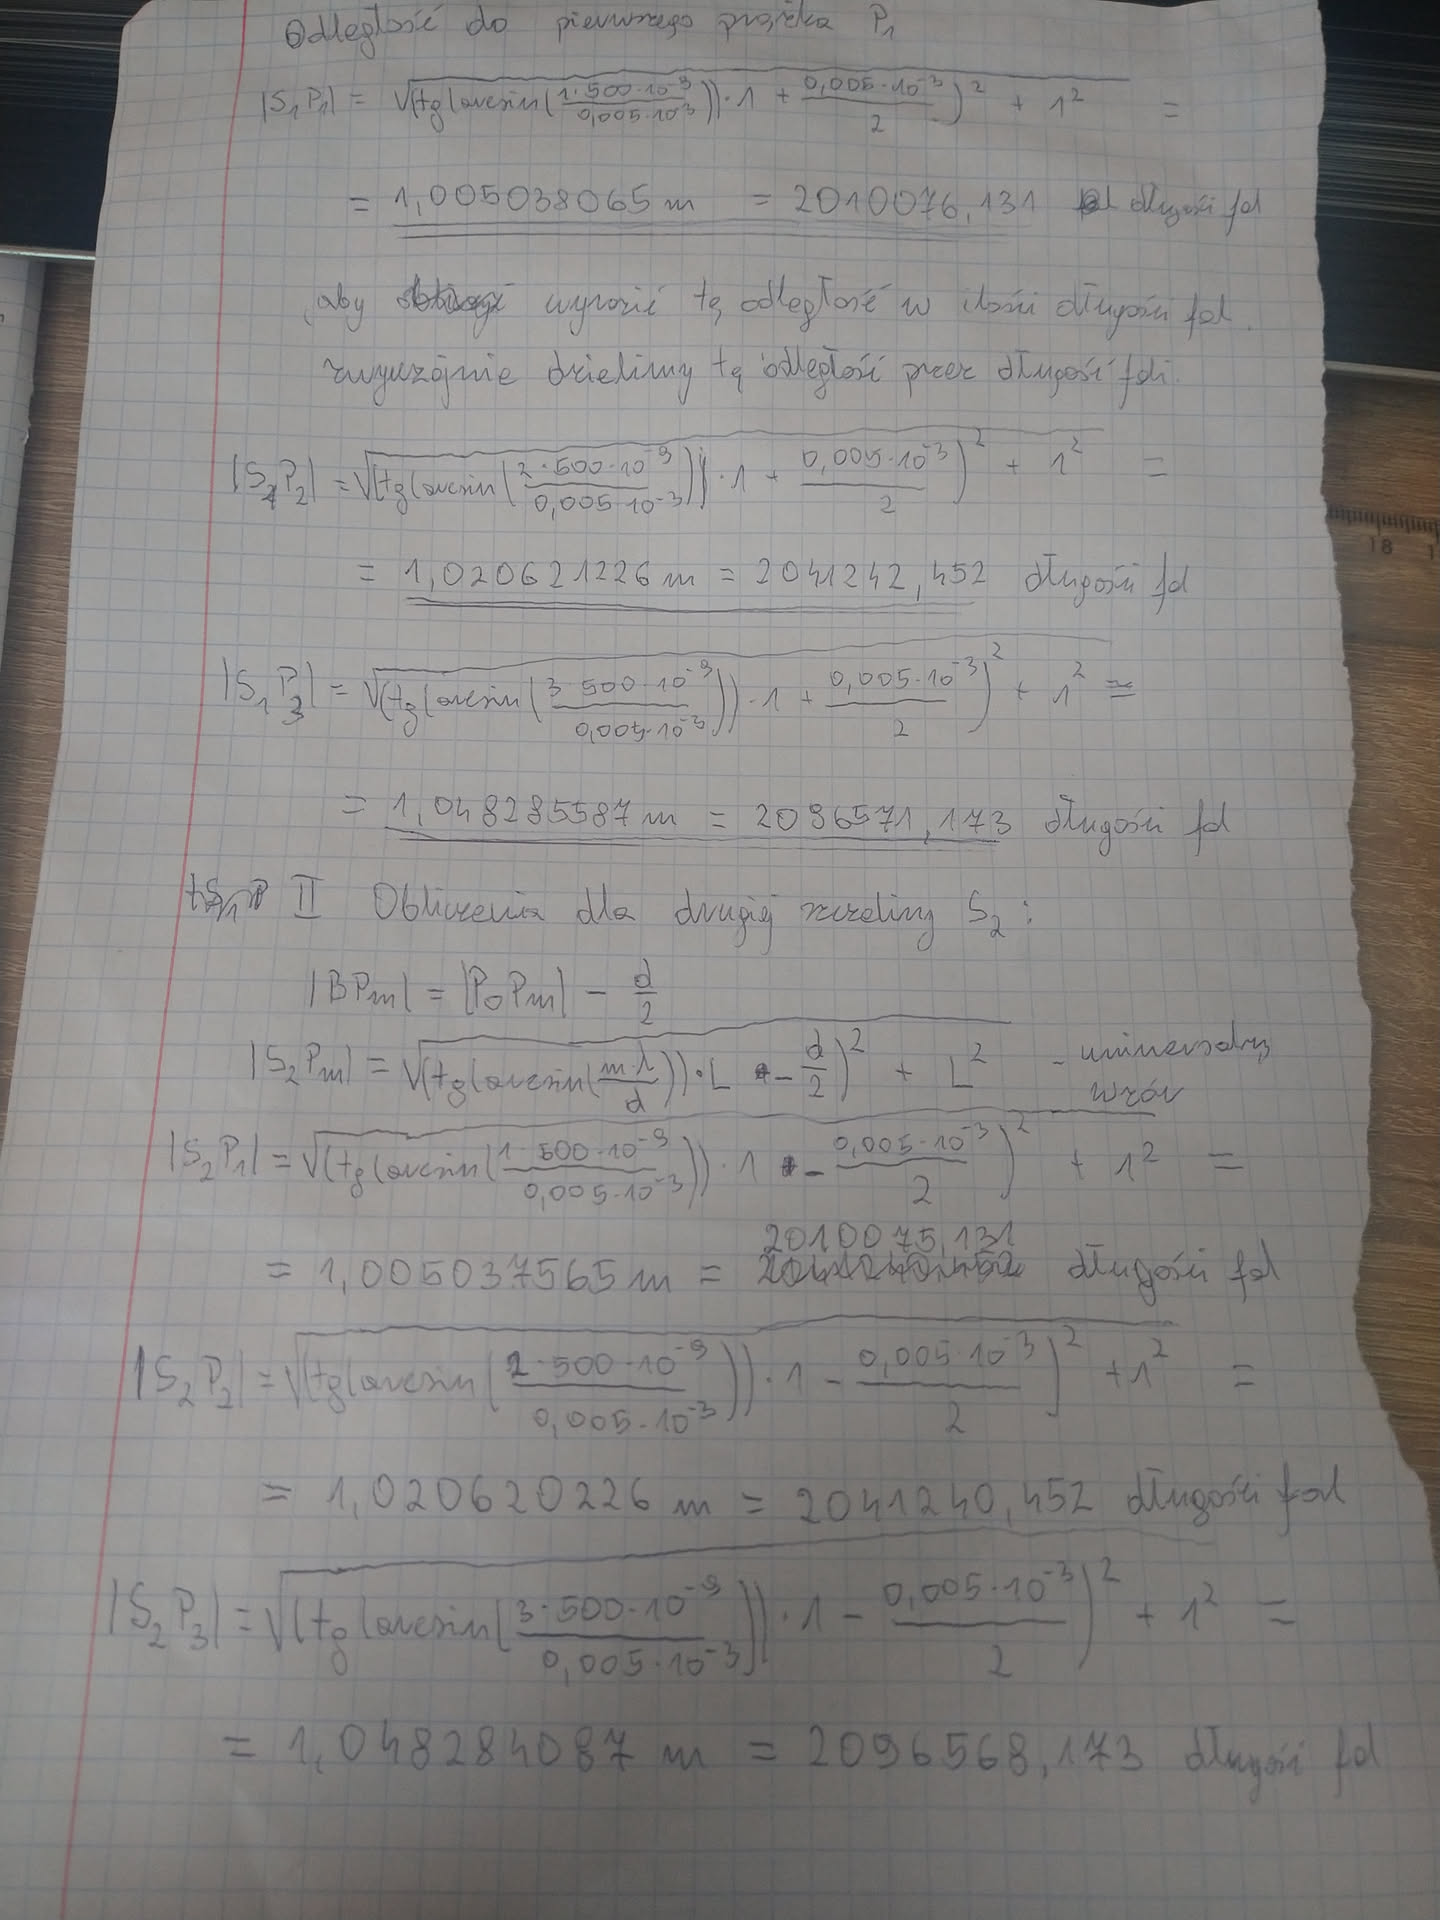 Odległość do pierwszego prążka P₁
|S₁P₁| = √(tg(arcsin(1·500·10⁻⁹/0,005·10⁻³))·1 + 0,005·10⁻³/2)² + 1² =
= 1,005038065 m = 2010076,131 długości fal
aby wyrazić tą odległość w ilości długości fal.
zwyczajnie dzielimy tą odległość przez długość fali.
|S₁P₂| = √(tg(arcsin(2·500·10⁻⁹/0,005·10⁻³))·1 + 0,005·10⁻³/2)² + 1² =
= 1,020621226 m = 2041242,452 długości fal
|S₁P₃| = √(tg(arcsin(3·500·10⁻⁹/0,005·10⁻³))·1 + 0,005·10⁻³/2)² + 1² =
= 1,048285587 m = 2096571,173 długości fal
II Obliczenia dla drugiej szczeliny S₂:
|BPm| = |P₀Pm| - d/2
|S₂Pm| = √(tg(arcsin(m·λ/d))·L - d/2)² + L² - uniwersalny
wzór
|S₂P₁| = √(tg(arcsin(1·500·10⁻⁹/0,005·10⁻³))·1 - 0,005·10⁻³/2)² + 1² =
2010075,131
= 1,005037565 m = długości fal
|S₂P₂| = √(tg(arcsin(2·500·10⁻⁹/0,005·10⁻³))·1 - 0,005·10⁻³/2)² + 1² =
= 1,020620226 m = 2041240,452 długości fal
|S₂P₃| = √(tg(arcsin(3·500·10⁻⁹/0,005·10⁻³))·1 - 0,005·10⁻³/2)² + 1² =
= 1,048284087 m = 2096568,173 długości fal
18